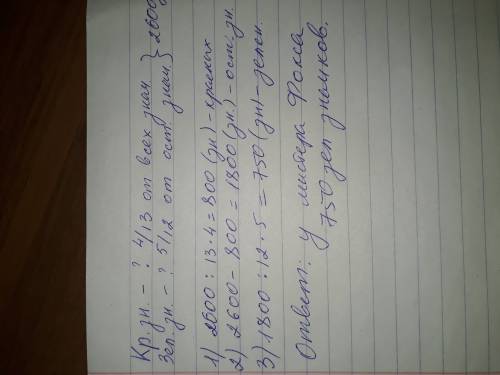 Кр. зн. - ? 4/13 от всех знач. } 2600
Зел. зн. - ? 5/12 от ост. знач. }
1) 2600 : 13 · 4 = 800 (зн) - красных
2) 2600 - 800 = 1800 (зн.) - ост. зн.
3) 1800 : 12 · 5 = 750 (зн) - зелен.
Ответ: у мистера Фокса
750 зел значков.